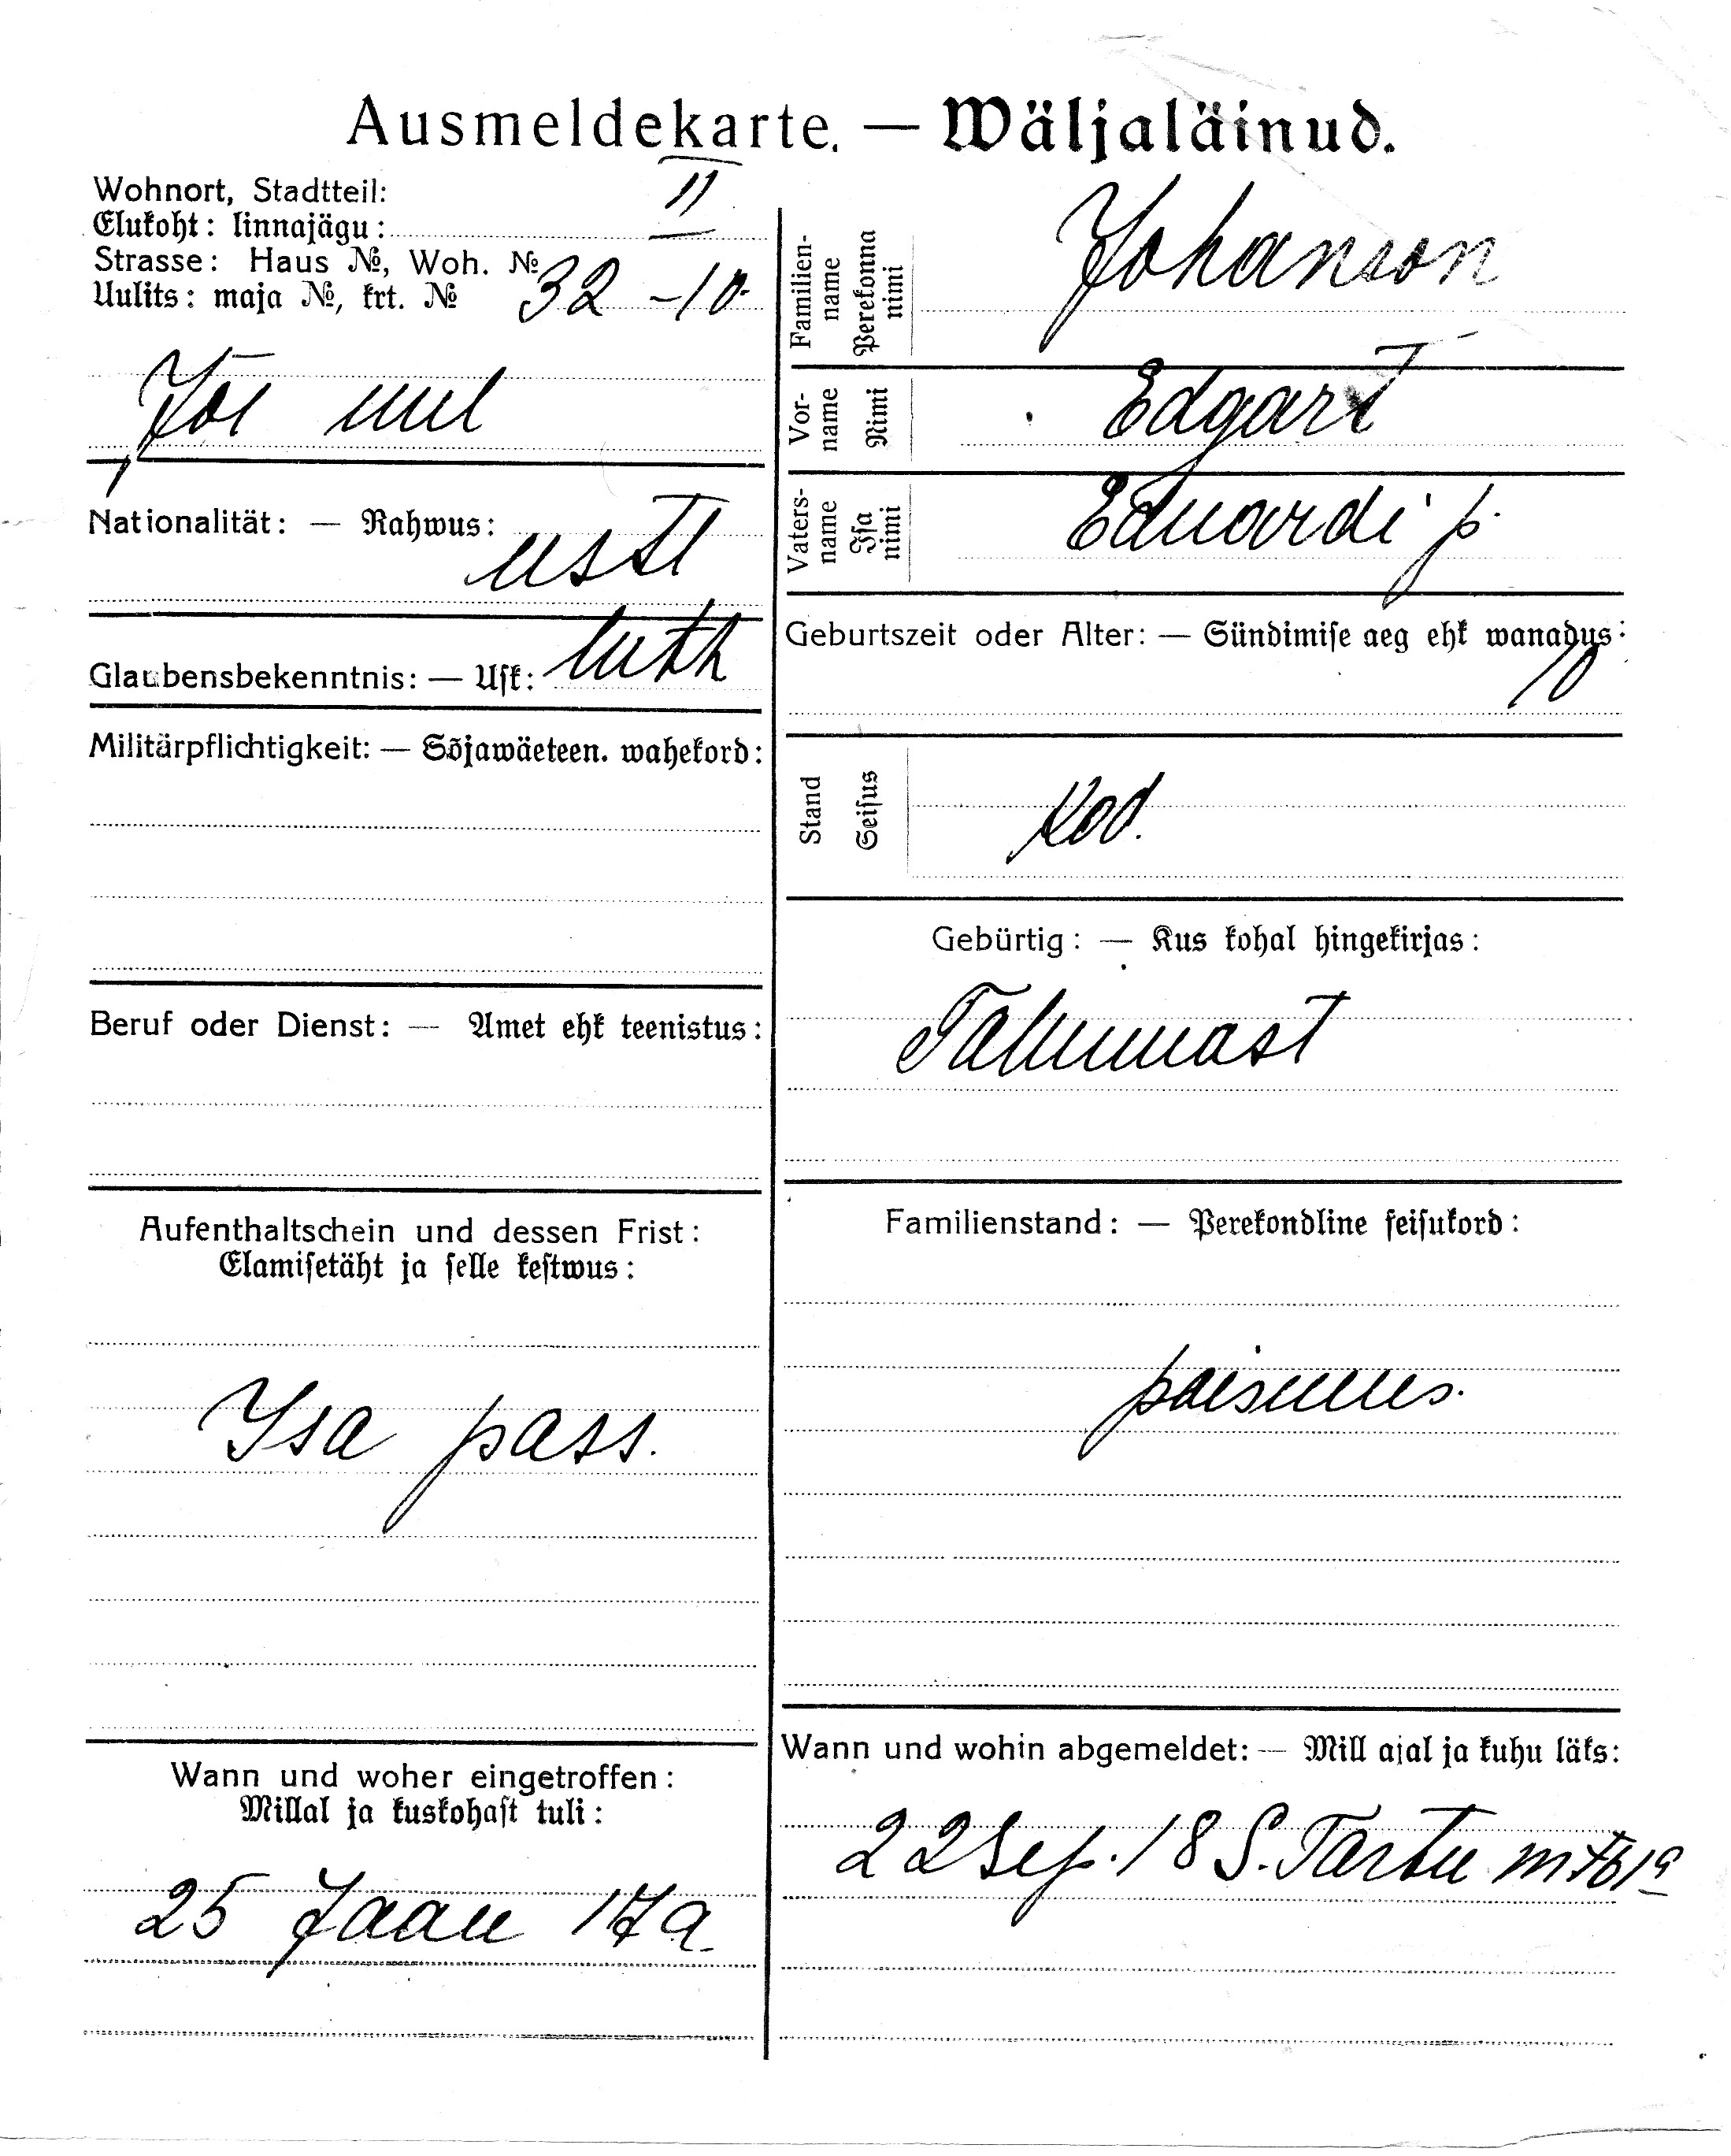 Ausmeldekarte. — Wäljaläinud.
Wohnort, Stadtteil:
Elukoht: linnajägu: II
Strasse: Haus №, Woh. №
Uulits: maja №, krt. № 32 – 10.
Jõe uul
Nationalität: — Rahwus: eestl
Glaubensbekenntnis: — Usk: luth
Militärpflichtigkeit: — Sõjawäeteen. wahekord:
Beruf oder Dienst: — Amet ehk teenistus:
Aufenthaltschein und dessen Frist:
Elamisetäht ja selle kestwus:
Isa pass.
Wann und woher eingetroffen:
Millal ja kuskohast tuli:
25 Jaan 17 a.
Familien-
name
Perekonna
nimi
Johanson
Vor-
name
Nimi
Edgart
Vaters-
name
Isa
nimi
Eduardi p.
Geburtszeit oder Alter: — Sündimise aeg ehk wanadus:
10
Stand
Seisus
Kod.
Gebürtig: — Kus kohal hingekirjas:
Tallinnast
Familienstand: — Perekondline seisukord:
poismees.
Wann und wohin abgemeldet: — Mill ajal ja kuhu läks:
22 Sep. 18 S. Tartu m